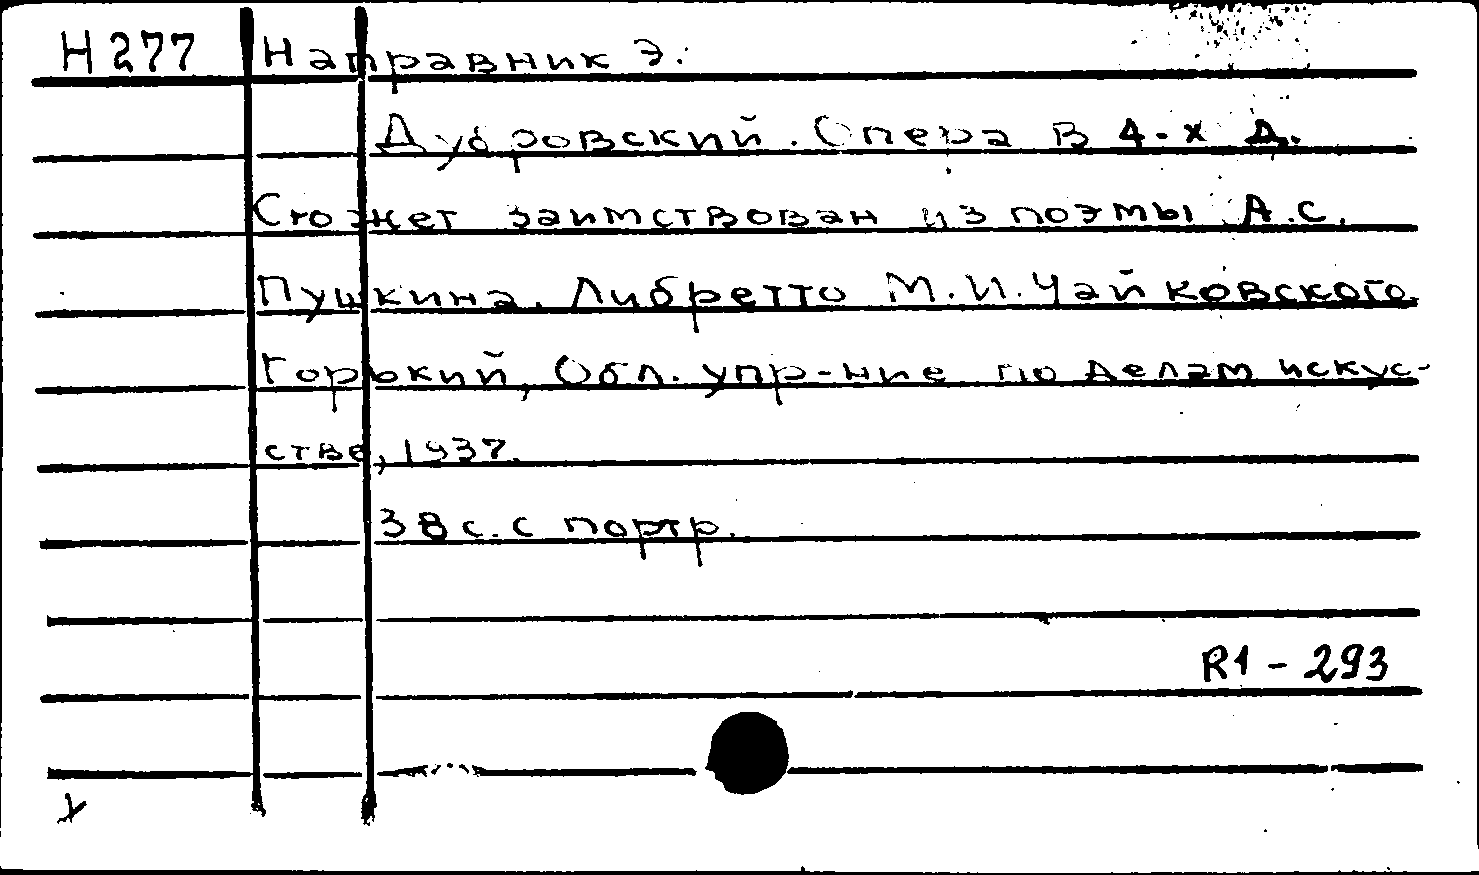 Н277 Направник Э.
Дубровский. Опера в 4-х д.
Сюжет заимствован из поэмы А.С.
Пушкина. Либретто М.И.Чайковского.
Горький, Обл. упр-ние по делам искус-
стве, 1937.
38 с. с портр.
R1 - 293